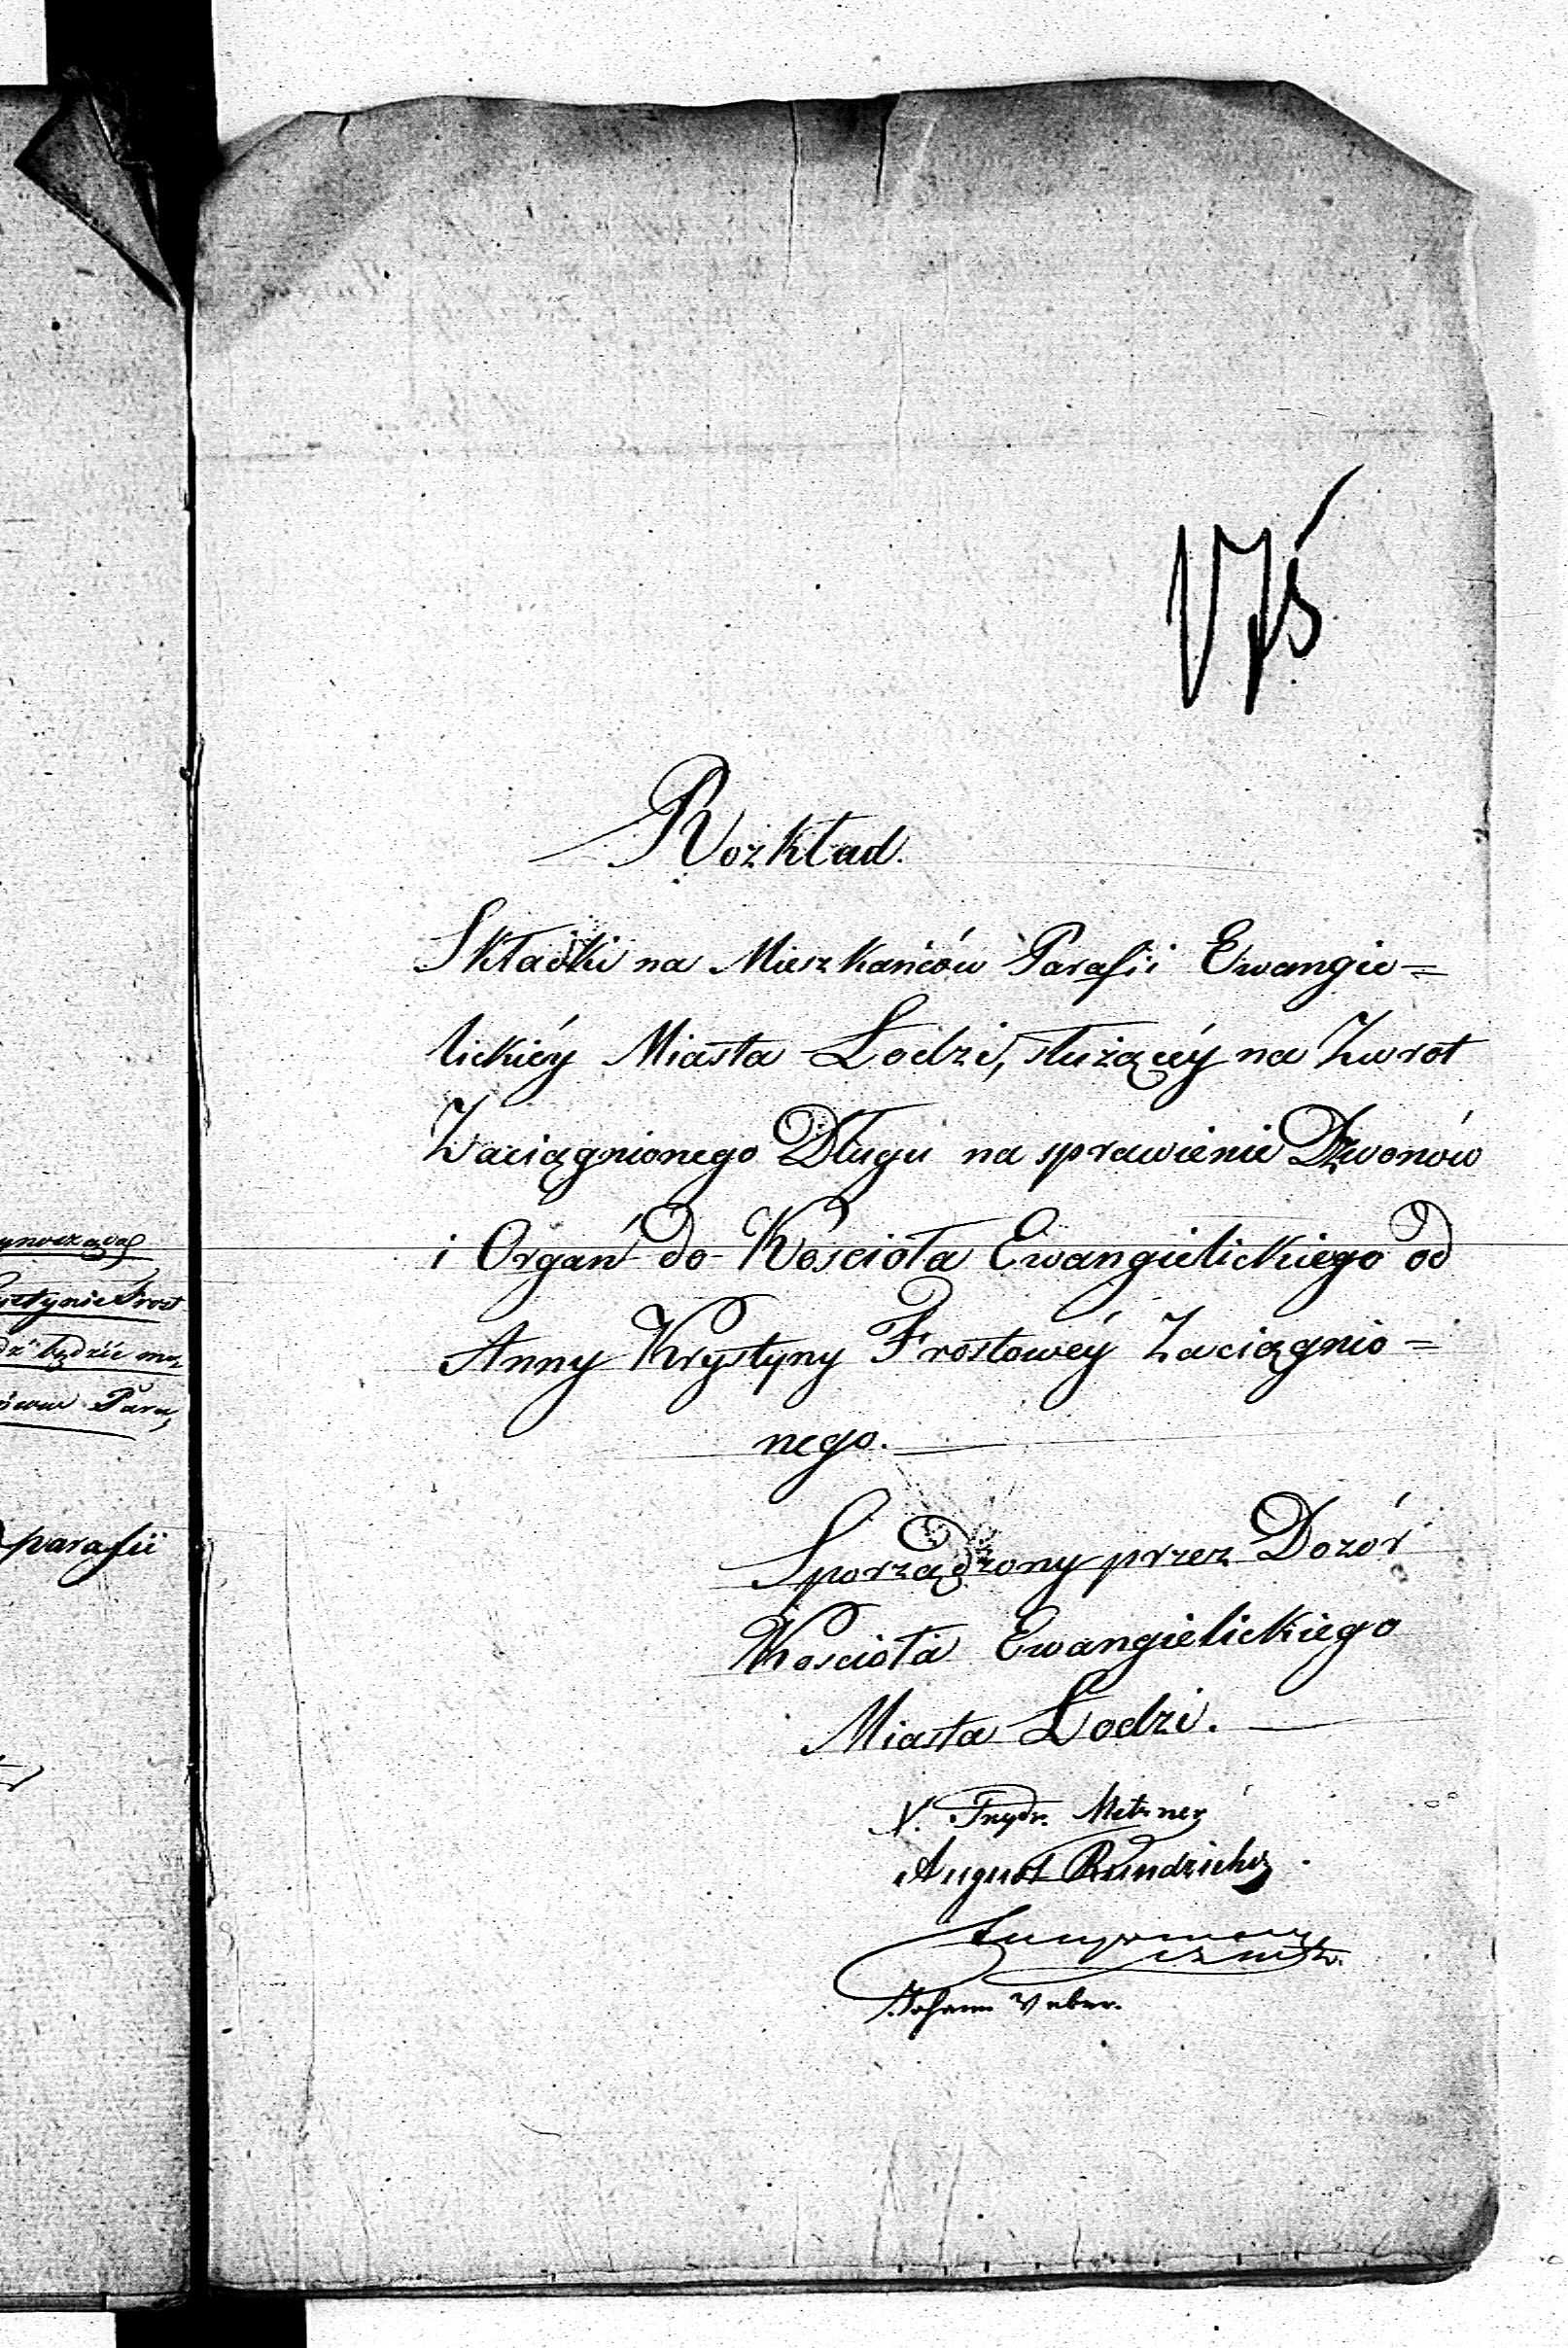 parafii
Rozkład.
Składki na Mieszkańców Parafii Ewangie=
lickiéy Miasta Łodzi, służącéy na Zwrot
Zaciągnionego Długu na sprawienie Dzwonów
i Organ do Kościoła Ewangielickiego od
Anny Krystyny Frostowéy Zaciągnio=
nego.
Sporządzony przez Dozór
Kościoła Ewangielickiego
Miasta Łodzi.
X. Frydr. Metzner
August Rundzieher
Johann Weber.